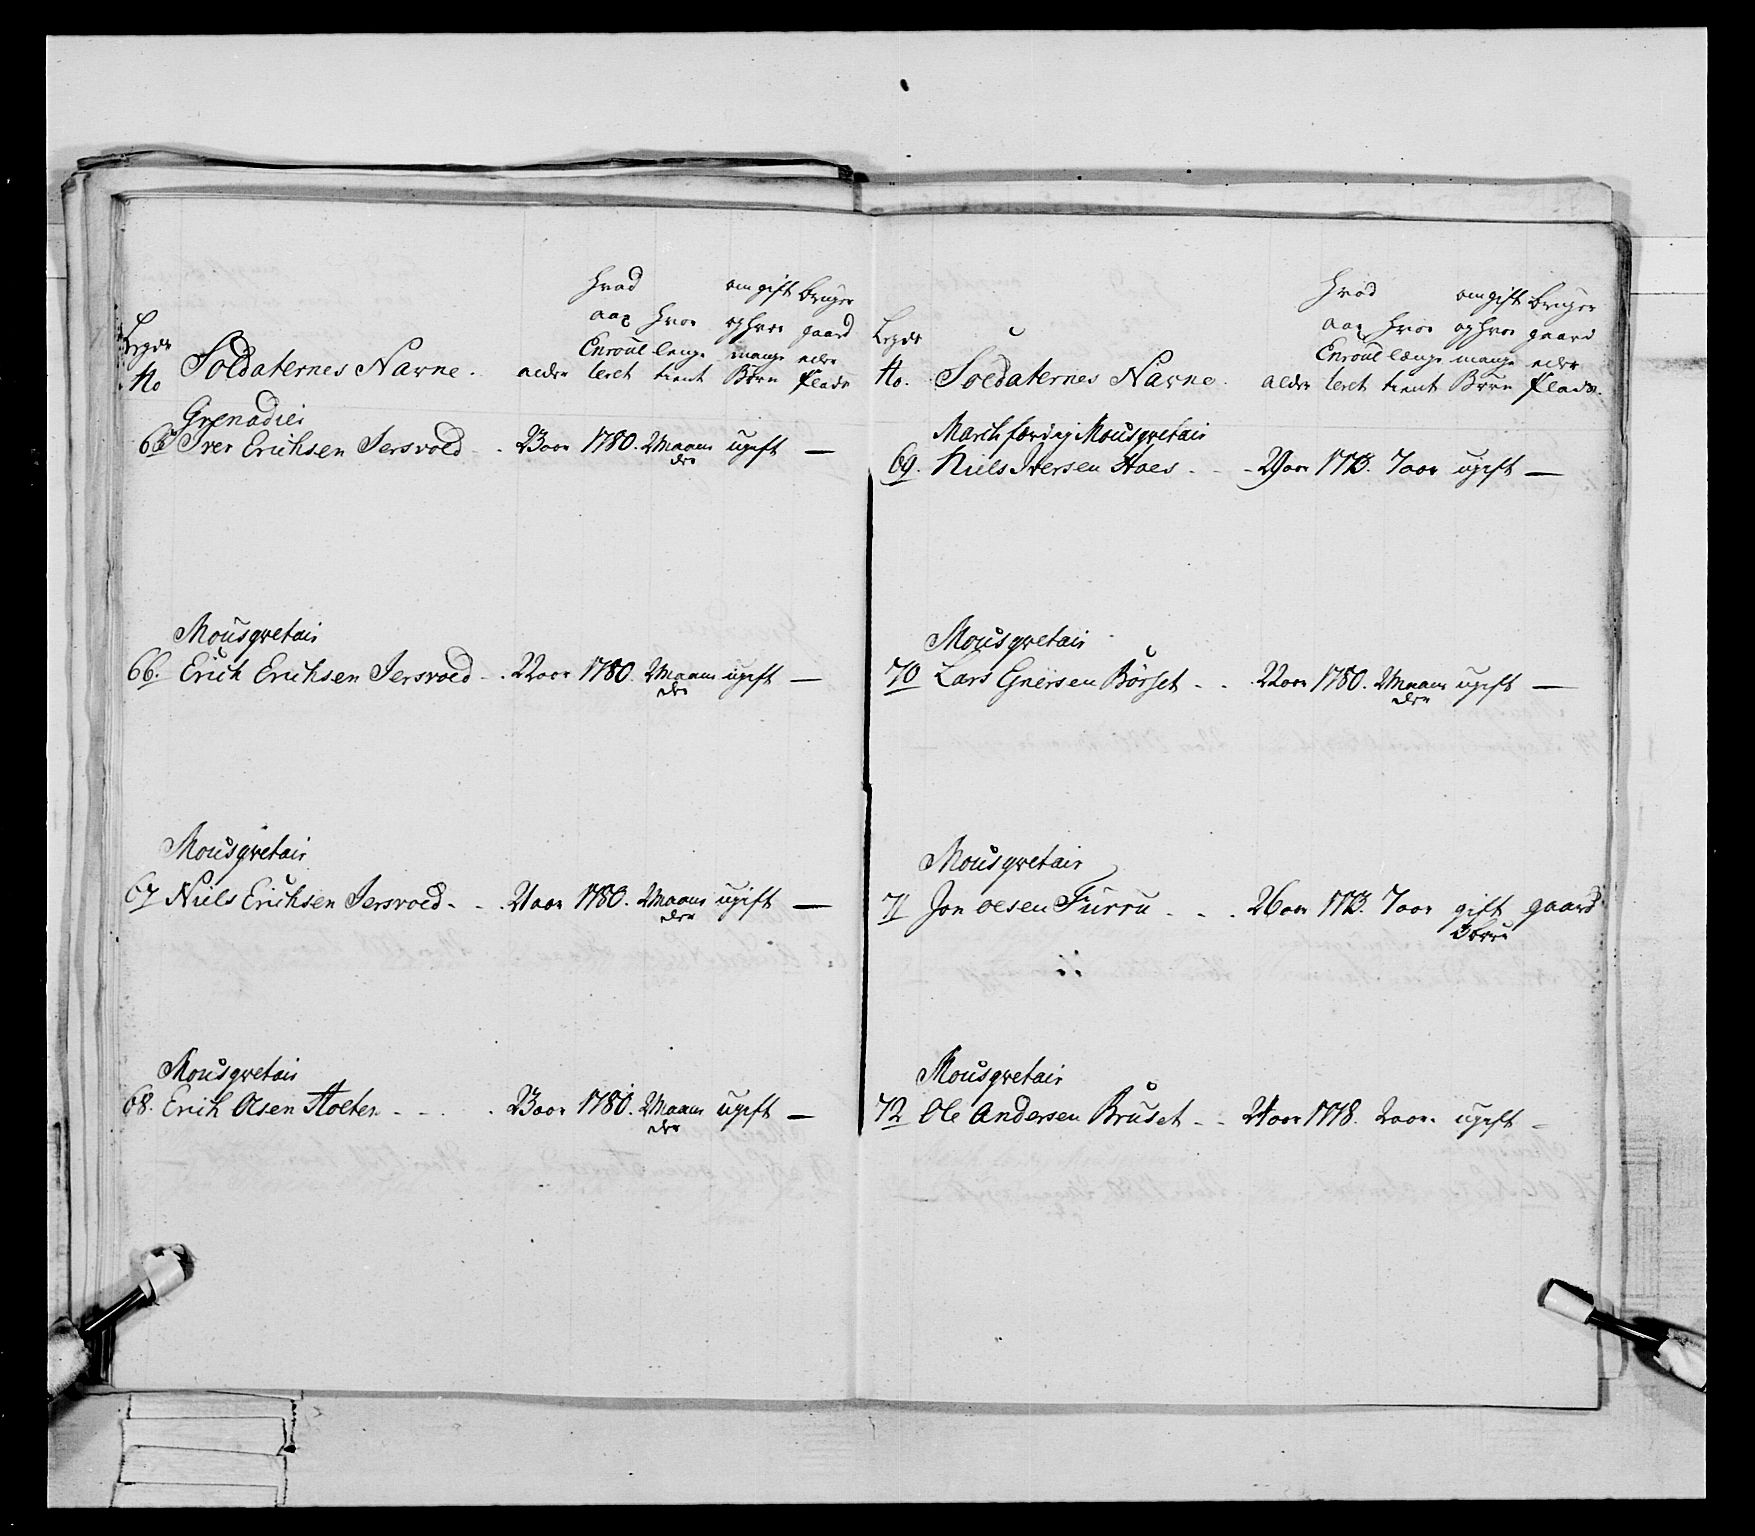 Legds No
Soldaternes Navne.
alder
hvad aar Enroulleret
hvor lenge tient
om gift og hvor mange Børn
bruger gaard eller Plads
Grenadier
65 Iver Erichsen Jersvold - . 23 aar 1780. 2 Maaneder ugift —
Mousqvetair
66. Erich Erichsen Jersvold - . 22 aar 1780. 2 Maaneder ugift —
Mousqvetair
67 Niels Erichsen Jersvold - . . 21 aar 1780. 2 Maaneder ugift —
Mousqvetair
68. Erich Olsen Holten - - - . 23 aar 1780. 2 Maaneder ugift —
Legds No.
Soldaternes Navne.
alder
hvad aar Enroulleret
hvor længe tient
om gift og hvor mange Børn
bruger gaard eller Plads.
March færdig Mousqvetair
69. Niels Iversen Haes - - - 29 aar 1773. 7 aar ugift —
Mousqvetair
70 Lars Gulersen Børset - - . 22 aar 1780. 2 Maaneder ugift —
Mousqvetair
71 Jon Olsen Furru - - . 26 aar 1773. 7 aar gift gaard
3 børn
Mousqvetair
72 Ole Andersen Bruset - - 24 aar 1778. 2 aar. ugift -